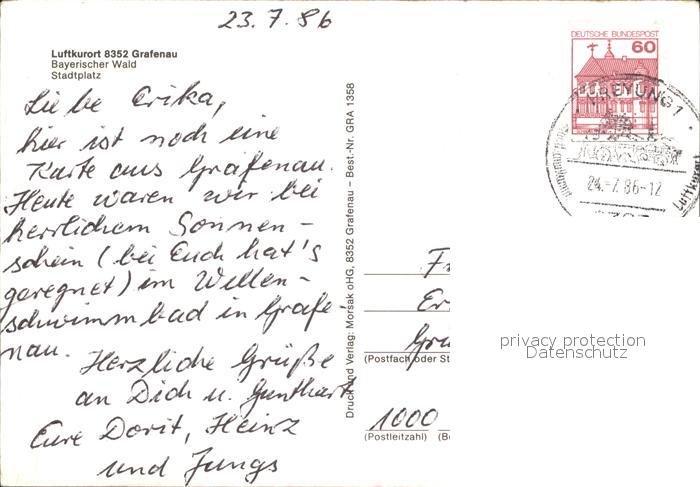 23.7.86
Luftkurort 8352 Grafenau
Bayerischer Wald
Stadtplatz
Liebe Erika,
hier ist noch eine
Karte aus Grafenau.
Heute waren wir bei
herrlichem Sonnen-
schein (bei Euch hat's
geregnet) im Wellen-
schwimmbad in Grafe-
nau.
Herzliche Grüße
an Dich u. Gunthart
Eure Dorit, Heinz
und Jungs
Druck und Verlag: Morsak oHG, 8352 Grafenau – Best.-Nr. GRA 1358
DEUTSCHE BUNDESPOST
60
FREYUNG 1
24.-7.86-12
Luftkurort
Fr
Er
Gru
(Postfach oder St
1000
(Postleitzahl) (Be
privacy protection
Datenschutz